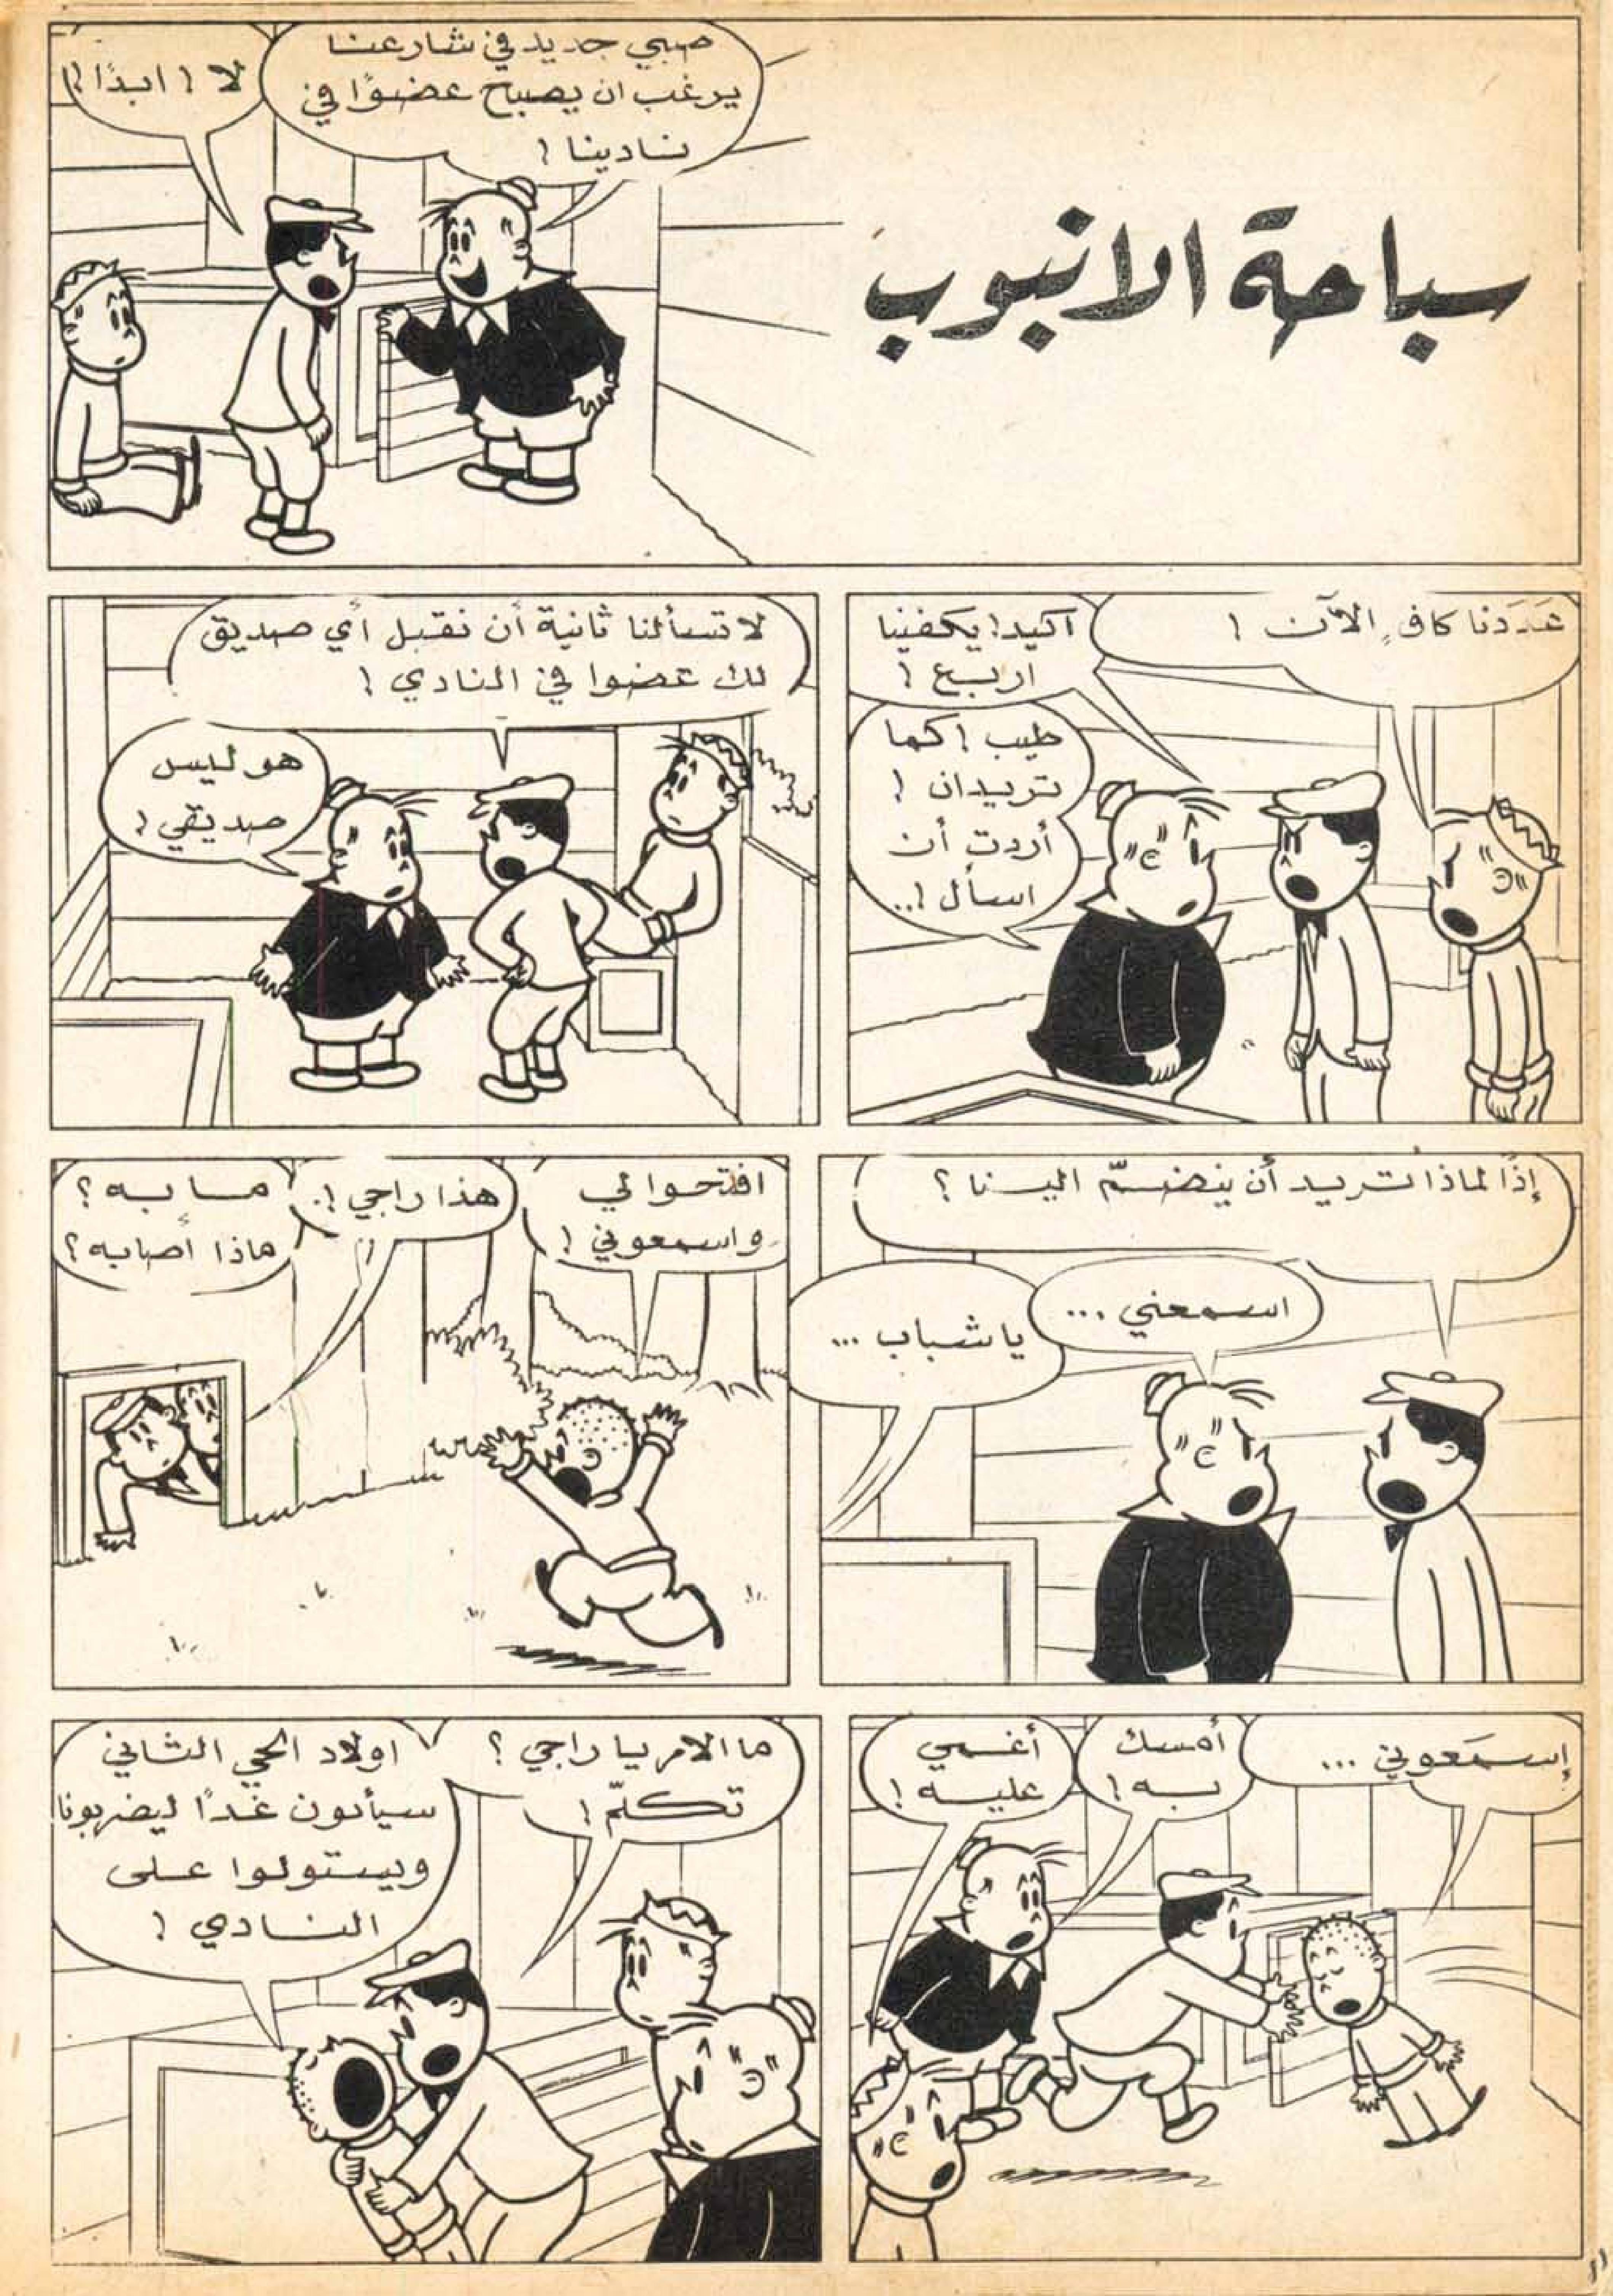 سباحة الانبوب
صبي جديد في شارعنا
يرغب ان يصبح عضوًا في
نادينا !
لا ! ابدًا !!
عَدَدنا كافٍ الآن !
اكيد! يكفينا
اربع !
طيب ! كما
تريدان !
أردت أن
اسأل !..
لا تسألنا ثانية أن نقبل أي صديق
لك عضوا في النادي !
هو ليس
صديقي !
إذًا لماذا تريد أن ينضمّ الينا ؟
اسمعني ...
يا شباب ...
افتحوا لي
واسمعوني !
هذا راجي !.
ما به ؟
ماذا أصابه ؟
إسمَعوني ...
أمسك
به !
أغمي
عليه !
ما الامر يا راجي ؟
تكلّم !
اولاد الحي الثاني
سيأتون غدًا ليضربونا
ويستولوا على
النادي !
١١